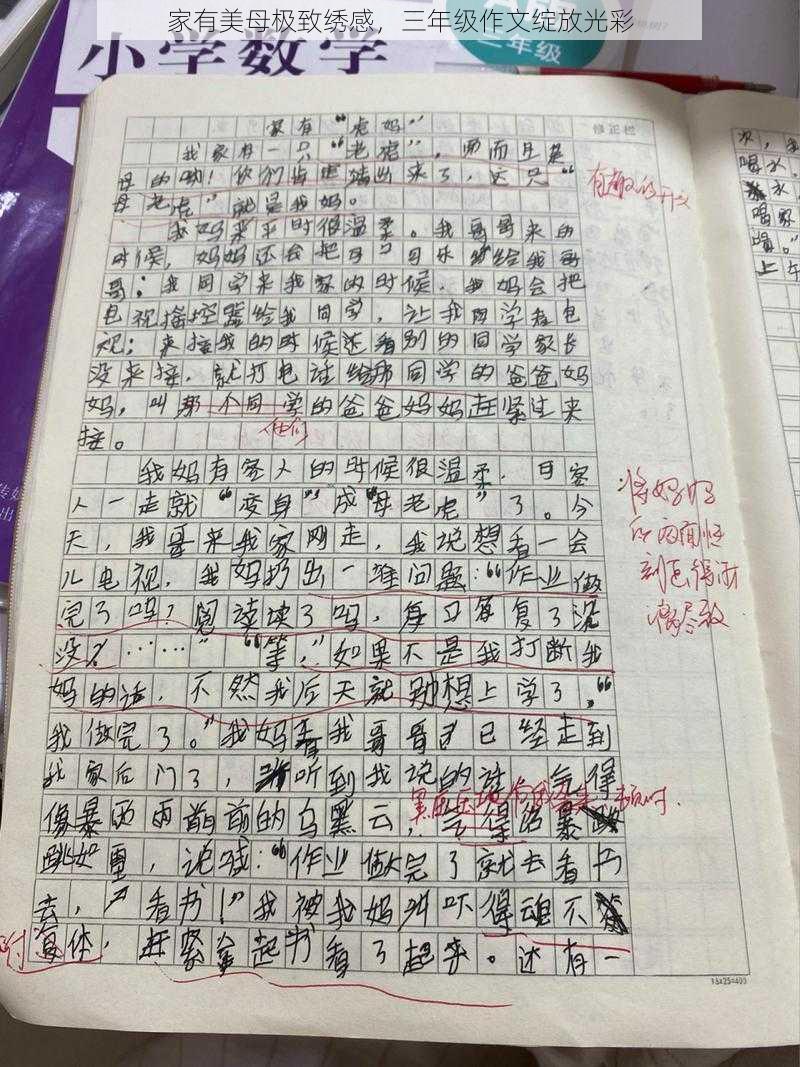 家有美母极致绣感，三年级作文绽放光彩
小学数学
三年级
修正栏
家有“虎妈”
我家有一只“老虎”，而且是
母的呦！你们肯定猜出来了，这只“
母老虎”就是我妈。
有趣的开文
我妈平时很温柔。我哥哥来的
时候，妈妈还会把可口可乐给我哥
哥；我同学来我家的时候，我妈会把
电视摇控器给我同学，让我同学看电
视；来接我的时候还看别的同学家长
没来接，就打电话给那同学的爸爸妈
妈，叫那个同学的爸爸妈妈赶紧过来
他们
接。
我妈有客人的时候很温柔，可客
人一走就“变身”成“母老虎”了。今
天，我哥来我家刚走，我说想看一会
儿电视，我妈扔出一堆问题：“作业做
完了吗？阅读读了吗，每日算复了没
没？……”“等，”如果不是我打断我
妈的话，不然我后天就别想上学了，“
我做完了。”我妈看我哥哥已经走到
我家后门了，听到我说的话，气得
像暴雨雨前的乌黑云，气得沿暴
跳如雷，说喊：“作业做完了就去看
去，看书！”我被我妈叫吓得魂不
付体，赶紧拿起书看了起来。还有一
将妈妈
的两面性
刻画得淋
漓尽致
16x25=400
次，
喝水，
水
喝家
喝。”
上午